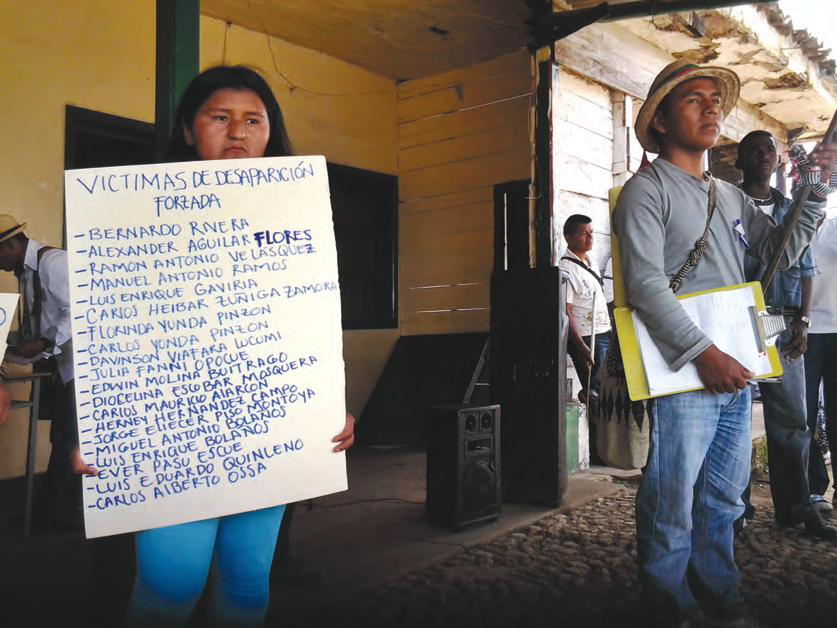 VICTIMAS DE DESAPARICIÓN
FORZADA
- BERNARDO RIVERA
- ALEXANDER AGUILAR FLORES
- RAMON ANTONIO VELASQUEZ
- MANUEL ANTONIO RAMOS
- LUIS ENRIQUE GAVIRIA
- CARLOS HEIBAR ZUÑIGA ZAMORA
- FLORINDA YUNDA PINZON
- CARLOS YONDA PINZON
- DAVINSON VIAFARA LUCUMI
- JULIA FANNI OPOCUE
- EDWIN MOLINA BUITRAGO
- DIOCELINA ESCOBAR MOSQUERA
- CARLOS MAURICIO ALARCON
- HERNEY HERNANDEZ CAMPO
- JORGE ELIECER PASO MONTOYA
- MIGUEL ANTONIO BOLAÑOS
- LUIS ENRIQUE BOLAÑOS
- EVER PASU ESCUE
- LUIS EDUARDO QUINLENO
- CARLOS ALBERTO OSSA